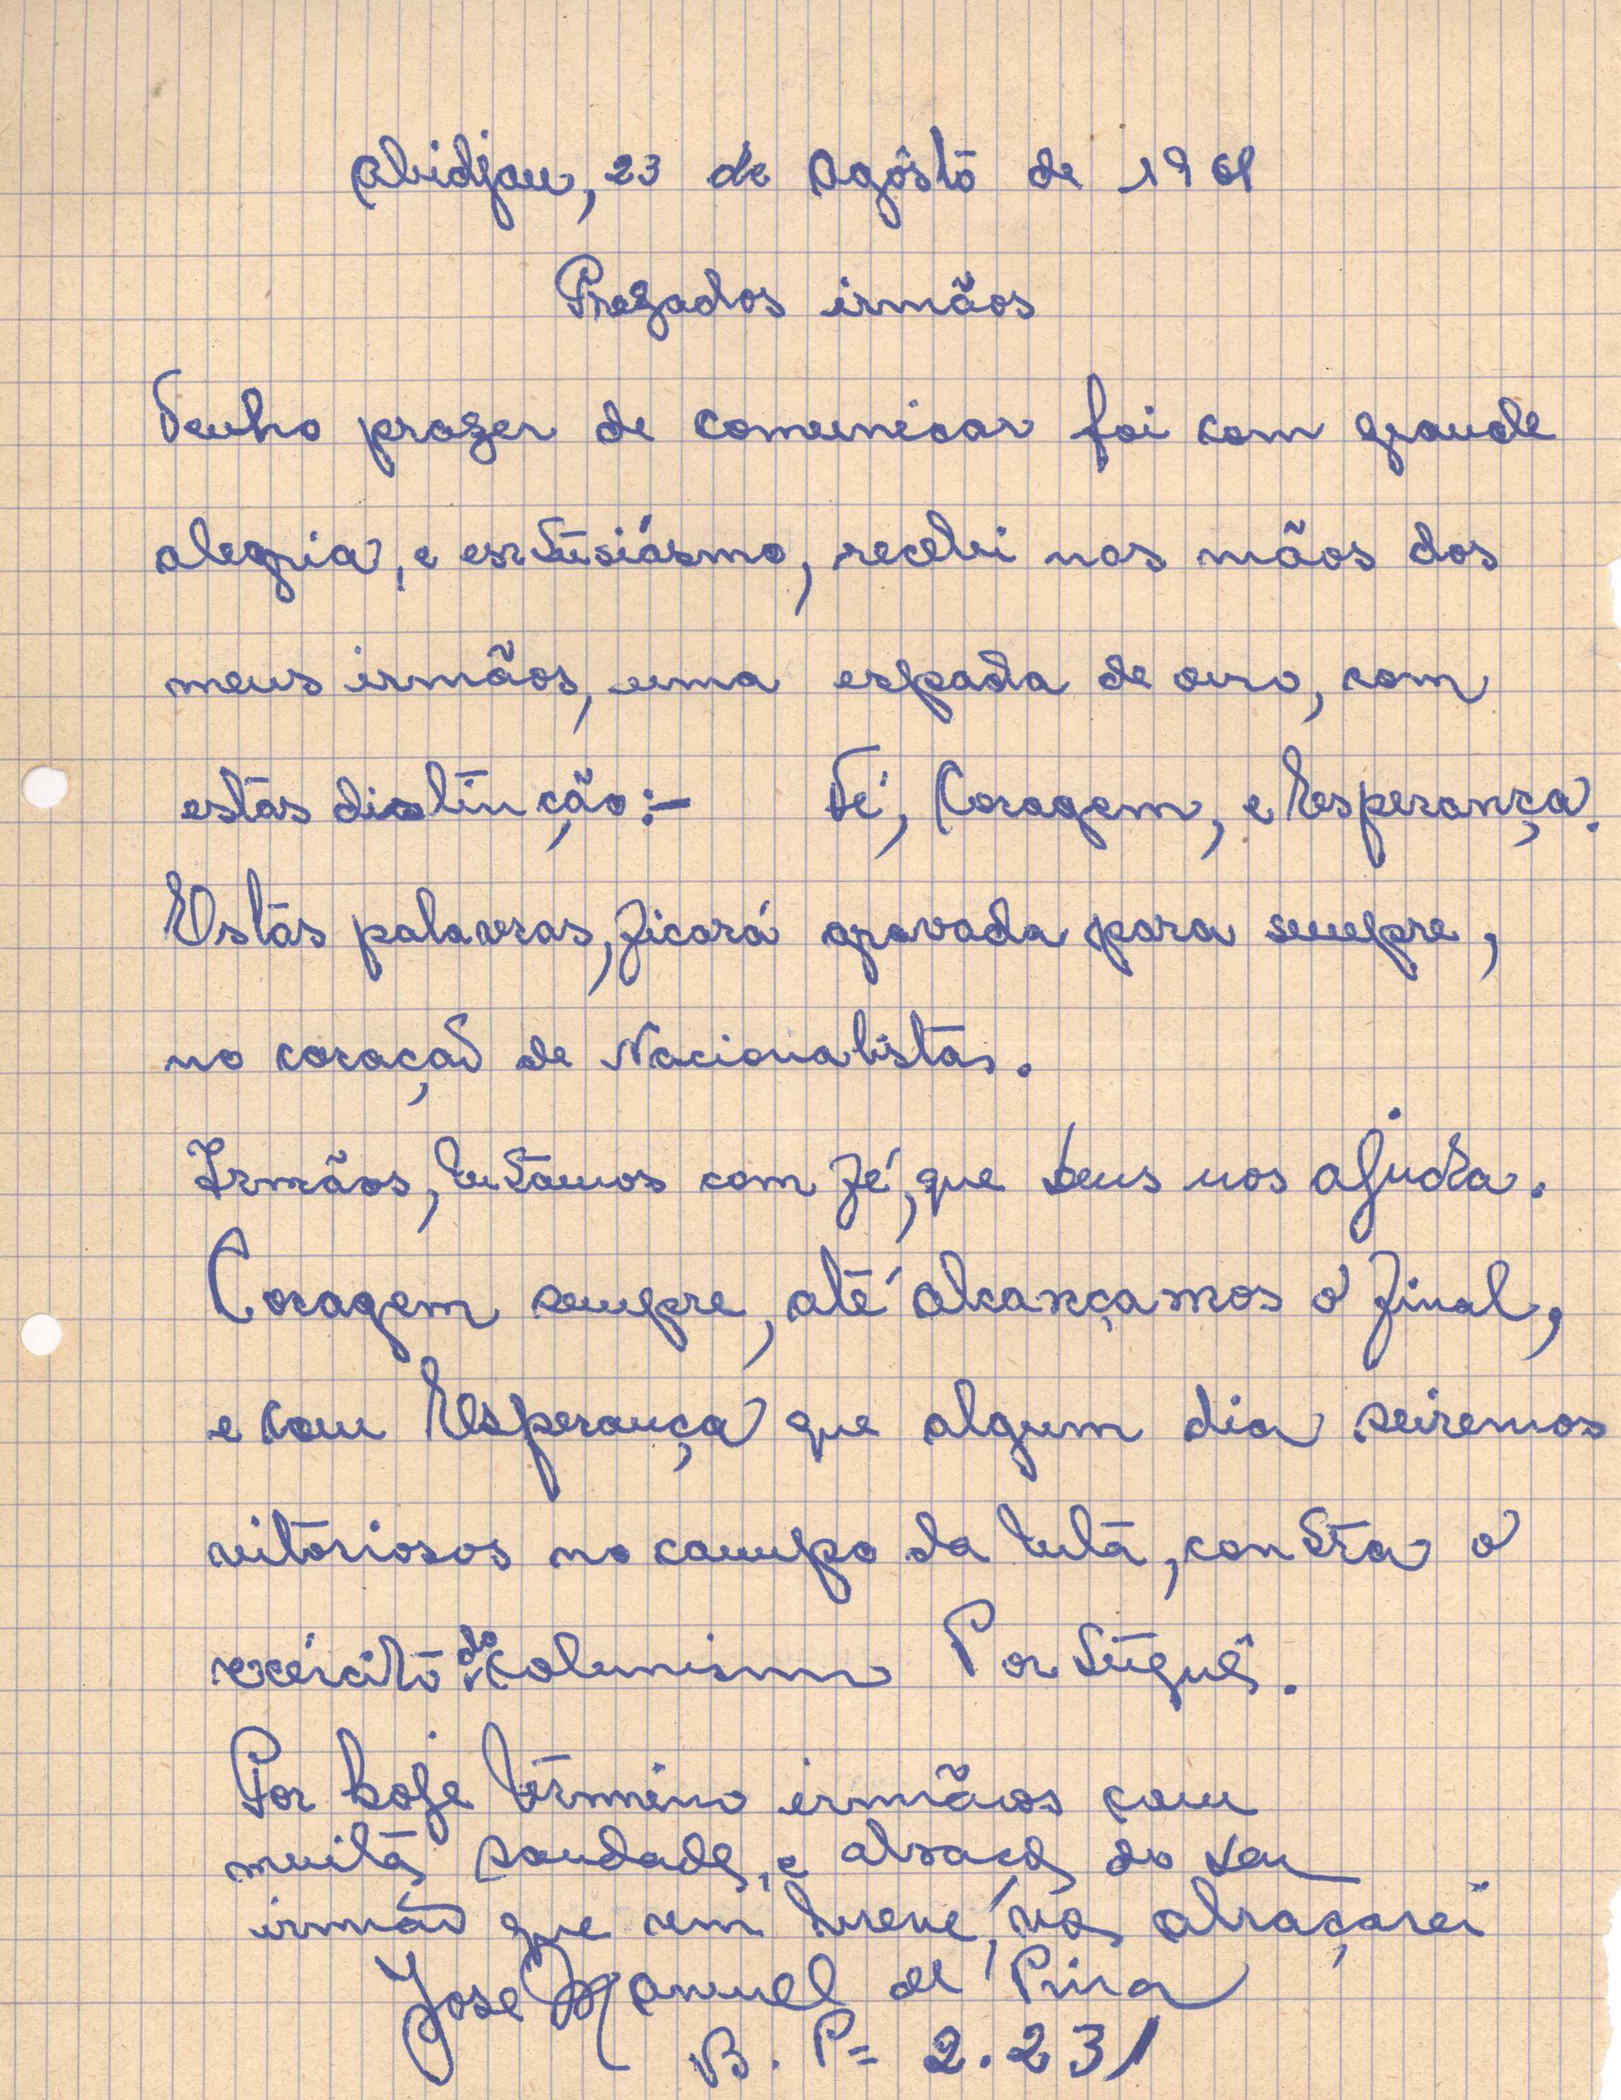 Abidjan, 23 de Agôsto de 1961
Prezados irmãos
Tenho prazer de comunicar foi com grande
alegria, e entusiásmo, recebi nas mãos dos
meus irmãos, uma espada de ouro, com
estas distinção:- Fé, Coragem, e Esperança.
Estas palavras, ficará gravada para sempre,
no coração de Nacionalistas.
Irmãos, lutamos com fé, que Deus nos ajuda.
Coragem sempre, até alcançamos o final,
e com Esperança que algum dia seiremos
vitoriosos no campo da luta, contra o
exército do Colunismo Portuguê.
Por hoje término irmãos com
muitas saudades, e abraços do seu
irmão que em breve, vos abraçarei
José Manuel de Pina
B. P= 2.231